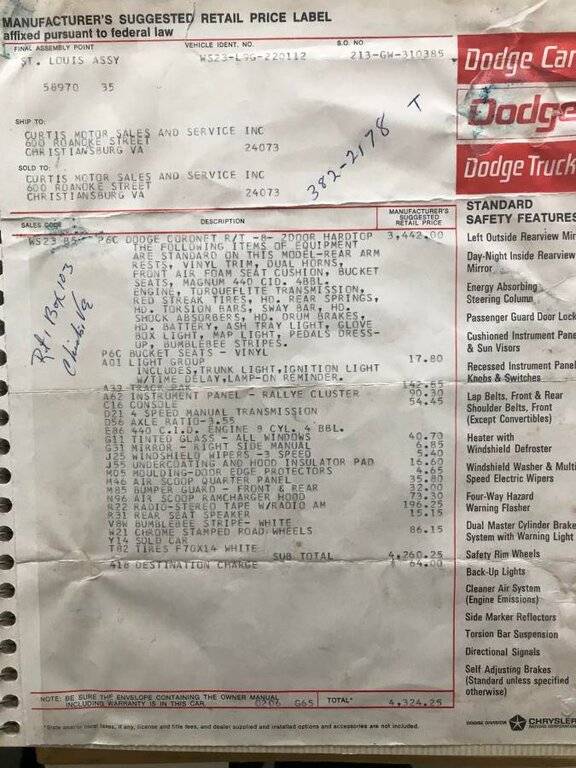 MANUFACTURER'S SUGGESTED RETAIL PRICE LABEL
affixed pursuant to federal law
FINAL ASSEMBLY POINT VEHICLE IDENT. NO. S.O. NO.
ST. LOUIS ASSY WS23-L9G-220112 213-GW-310385
58970 35
SHIP TO:
CURTIS MOTOR SALES AND SERVICE INC
600 ROANOKE STREET
CHRISTIANSBURG VA 24073
382-2178 T
SOLD TO:
CURTIS MOTOR SALES AND SERVICE INC
600 ROANOKE STREET
CHRISTIANSBURG VA 24073
SALES CODE DESCRIPTION MANUFACTURER'S SUGGESTED RETAIL PRICE
WS23 85 P6C DODGE CORONET R/T -8- 2DOOR HARDTOP 3,442.00
THE FOLLOWING ITEMS OF EQUIPMENT
ARE STANDARD ON THIS MODEL-REAR ARM
RESTS, VINYL TRIM, DUAL HORNS,
FRONT AIR FOAM SEAT CUSHION, BUCKET
SEATS, MAGNUM 440 CID. 4BBL.
ENGINE, TORQUEFLITE TRANSMISSION,
RED STREAK TIRES, HD. REAR SPRINGS,
HD. TORSION BARS, SWAY BAR, HD.
SHOCK ABSORBERS, HD. DRUM BRAKES,
HD. BATTERY, ASH TRAY LIGHT, GLOVE
BOX LIGHT, MAP LIGHT, PEDALS DRESS-
UP, BUMBLEBEE STRIPES.
Rt. 1 Box 103
P6C BUCKET SEATS - VINYL
A01 LIGHT GROUP 17.80
INCLUDES,TRUNK LIGHT,IGNITION LIGHT
W/TIME DELAY,LAMP-ON REMINDER.
A33 TRACK PAK 142.85
A62 INSTRUMENT PANEL - RALLYE CLUSTER 90.30
C16 CONSOLE 54.45
D21 4 SPEED MANUAL TRANSMISSION
D56 AXLE RATIO-3.55
E86 440 C.I.D. ENGINE 8 CYL. 4 BBL.
G11 TINTED GLASS - ALL WINDOWS 40.70
G31 MIRROR - RIGHT SIDE MANUAL 6.85
J25 WINDSHIELD WIPERS -3 SPEED 5.40
J55 UNDERCOATING AND HOOD INSULATOR PAD 16.60
M05 MOULDING-DOOR EDGE PROTECTORS 4.65
M46 AIR SCOOP QUARTER PANEL 35.80
M85 BUMPER GUARD - FRONT & REAR 32.00
N96 AIR SCOOP RAMCHARGER HOOD 73.30
R22 RADIO-STEREO TAPE W/RADIO AM 196.25
R31 REAR SEAT SPEAKER 15.15
V8W BUMBLEBEE STRIPE- WHITE
W21 CHROME STAMPED ROAD WHEELS 86.15
Y14 SOLD CAR
T82 TIRES F70X14 WHITE
SUB TOTAL 4,260.25
418 DESTINATION CHARGE 64.00
NOTE: BE SURE THE ENVELOPE CONTAINING THE OWNER MANUAL
INCLUDING WARRANTY IS IN THIS CAR. 0206 G65 TOTAL* 4,324.25
*State and/or local taxes, if any, license and title fees, and dealer supplied and installed options and accessories are not included.
Dodge Car
Dodge
Dodge Truck
STANDARD
SAFETY FEATURES
Left Outside Rearview Mir
Day-Night Inside Rearview
Mirror
Energy Absorbing
Steering Column
Passenger Guard Door Lock
Cushioned Instrument Pane
& Sun Visors
Recessed Instrument Panel
Knobs & Switches
Lap Belts, Front & Rear
Shoulder Belts, Front
(Except Convertibles)
Heater with
Windshield Defroster
Windshield Washer & Multi
Speed Electric Wipers
Four-Way Hazard
Warning Flasher
Dual Master Cylinder Brake
System with Warning Light
Safety Rim Wheels
Back-Up Lights
Cleaner Air System
(Engine Emissions)
Side Marker Reflectors
Torsion Bar Suspension
Directional Signals
Self Adjusting Brakes
(Standard unless specified
otherwise)
DODGE DIVISION CHRYSLER
MOTORS CORPORATION